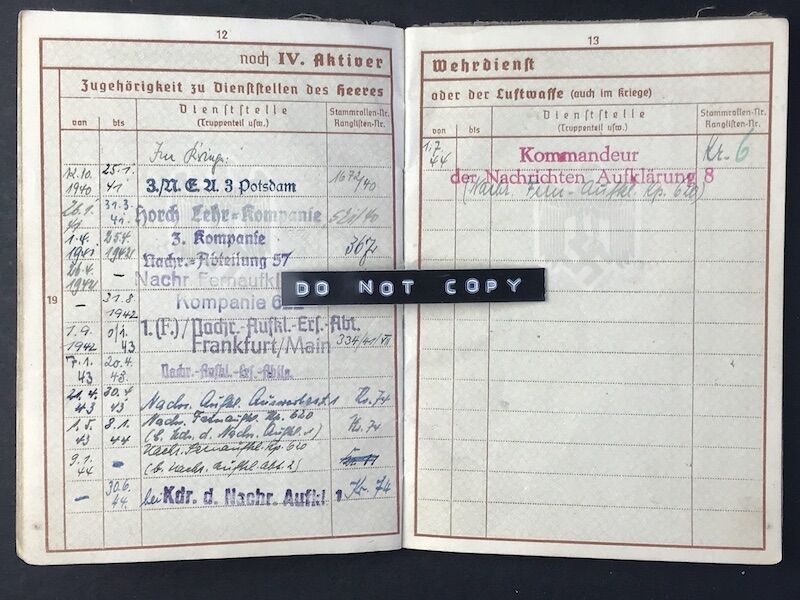 12
noch IV. Aktiver
Zugehörigkeit zu Dienststellen des Heeres
von bis Dienststelle (Truppenteil usw.) Stammrollen-Nr. Ranglisten-Nr.
19
Im Kriege:
12.10. 1940 25.1. 41 3./N.E.A. 3 Potsdam 1672/40
26.1. 41 31.3. 41. Horch Lehr-Kompanie
1.4. 1941 25.4. 1942 3. Kompanie
Nachr.-Abteilung 57 367
26.4. 1942 – Nachr Fernaufkl
– 31.8 1942 Kompanie 622
1.9. 1942 43 1.(F.)/Nachr.-Aufkl.-Ers.-Abt.
Frankfurt/Main 334/41/VII
7.1. 43 20.4. 43. Nachr.-Aufkl.-Ers.-Abtlg.
21.4. 43 30.4 43 Nachr. Aufkl. Auswertest. 1 Kr. 74
1.5. 43 8.1. 44 Nachr. Fernaufkl. Kp. 620
(b. Kdr. d. Nachr. Aufkl. 1) Kr. 74
9.1. 44 – Nachr. Fernaufkl. Kp. 620
(b. Nachr. Aufkl. Abt. 2)
– 30.6. 44. bei Kdr. d. Nachr. Aufkl 1 Kr. 74
DO NOT COPY
13
Wehrdienst
oder der Luftwaffe (auch im Kriege)
von bis Dienststelle (Truppenteil usw.) Stammrollen-Nr. Ranglisten-Nr.
1.7. 44 Kommandeur Kr. 6
der Nachrichten Aufklärung 8
(Nachr. Fern-Aufkl. Kp. 620)